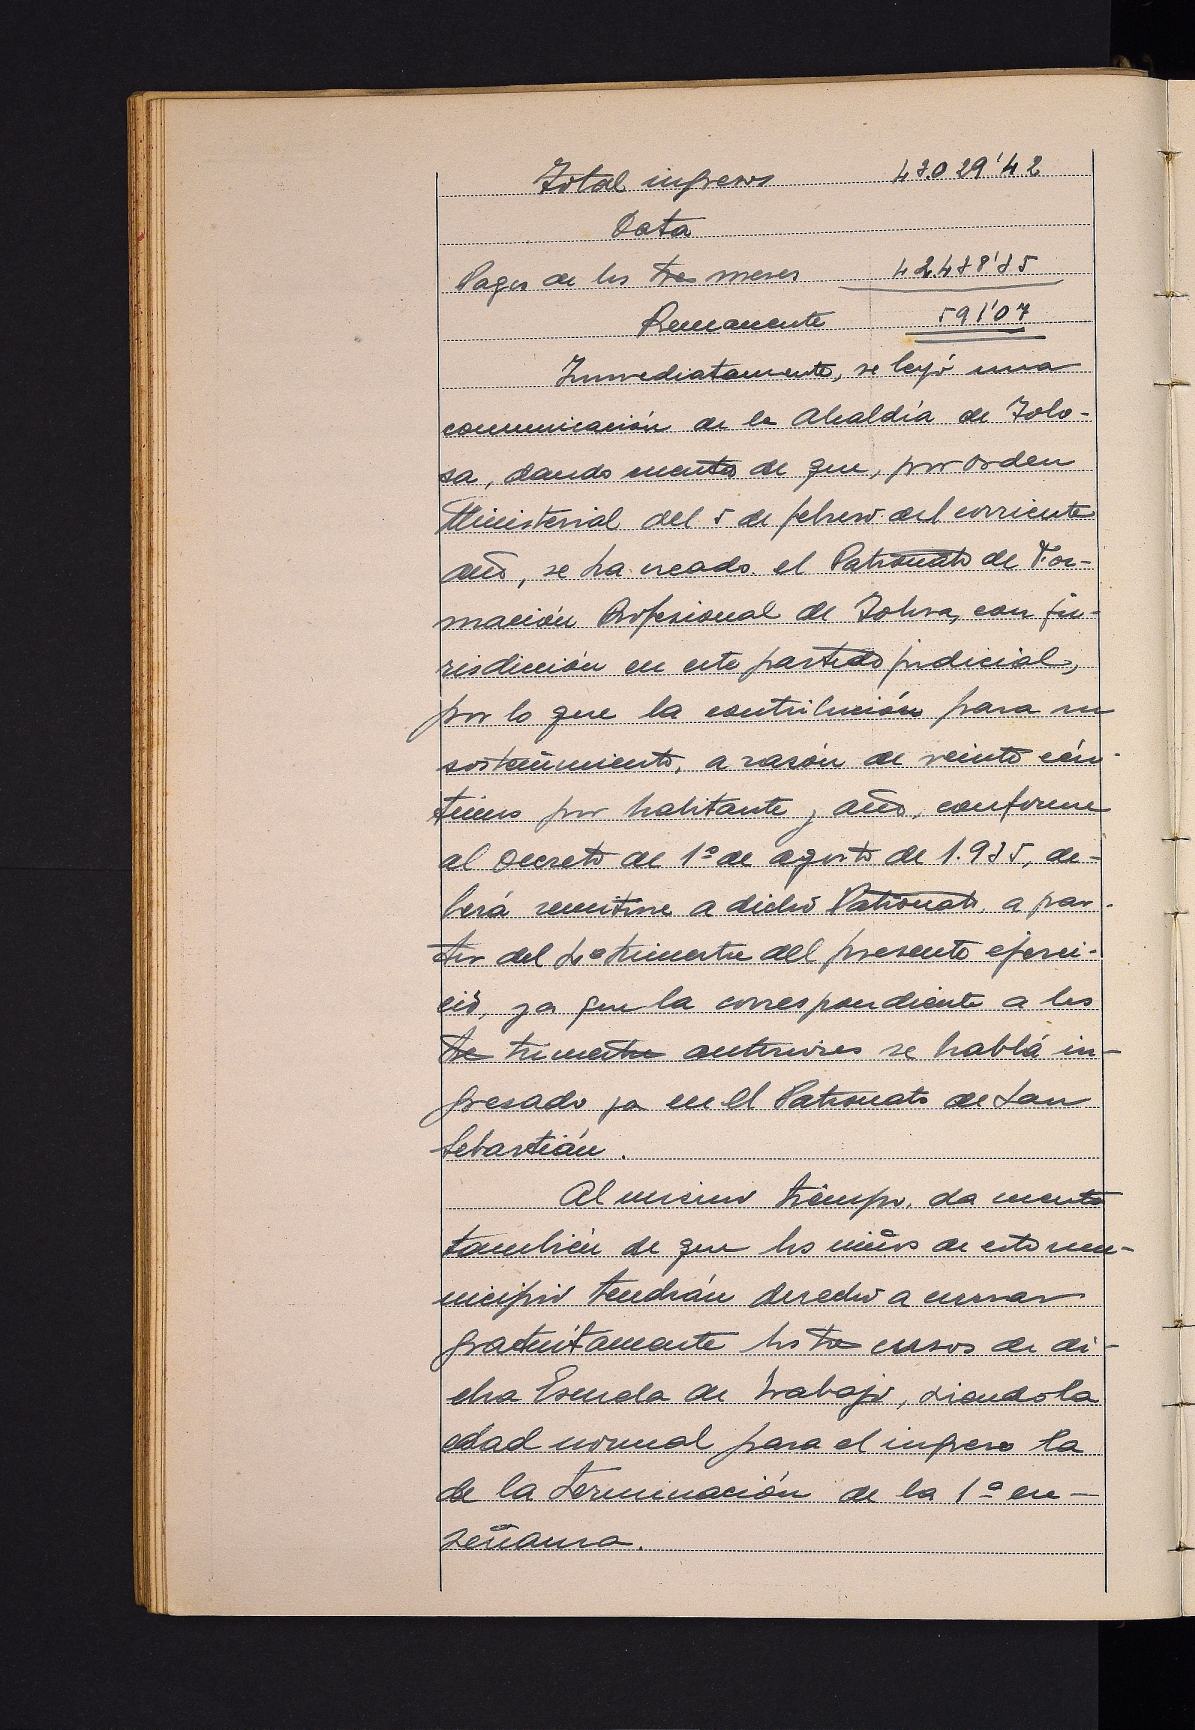 Total ingresos 43.029'42
Data
Pagos de los tres meses 42438'35
Remanente 591'07
Inmediatamente, se leyó una
comunicación de la Alcaldía de Tolo-
sa, dando cuenta de que, por orden
Ministerial del 5 de febrero del corriente
año, se ha creado el Patronato de For-
mación Profesional de Tolosa, con ju-
risdicción en este partido judicial,
por lo que la contribución para su
sosteñimiento, a rasón de veinte cén-
timos por habitante y año, conforme
al Decreto de 1º de agosto de 1.935, de-
berá remitirse a dicho Patronato, a par-
tir del 4º trimestre del presente ejerci-
cio, ya que la correspondiente a los
tres trimestres anteriores se había in-
gresado ya en el Patronato de San
Sebastián.
Al mismo tiempo, da cuenta
también de que los niños de este mu-
nicipio tendrán derecho a cursar
gratuitamente los tres cursos de di-
cha Escuela de trabajo, siendo la
edad normal para el ingreso la
de la terminación de la 1ª en-
señansa.